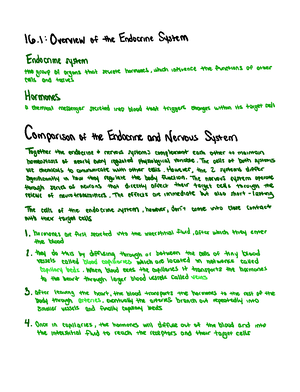 16.1: Overview of the Endocrine System
Endocrine system
the group of organs that secrete hormones, which influence the functions of other
cells and tissues
Hormones
a chemical messenger secreted into blood that triggers changes within its target cell
Comparison of the Endocrine and Nervous System
Together the endocrine & nervous systems complement each other to maintain
homeostasis of nearly every regulated physiological variable. The cells of both systems
use chemicals to communicate with other cells. However, the 2 systems differ
significantly in how they regulate the body function. The nervous system operates
through series of neurons that directly affect their target cells through the
release of neurotransmitters. The effects are immediate but also short-lasting
The cells of the endocrine system, however, don't come into close contact
with their target cells
1. hormones are first secreted into the interstitial fluid, after which they enter
the blood
2. they do this by diffusing through or between the cells of tiny blood
vessels called blood capillaries which are located in networks called
capillary beds. When blood exits the capillaries it transports the hormones
to the heart through larger blood vessels called veins
3. After leaving the heart, the blood transports the hormones to the rest of the
body through arteries, eventually the arteries branch out repeatedly into
smaller vessels and finally capillary beds
4. Once in capillaries, the hormones will diffuse out of the blood and into
the interstitial fluid to reach the receptors and their target cells